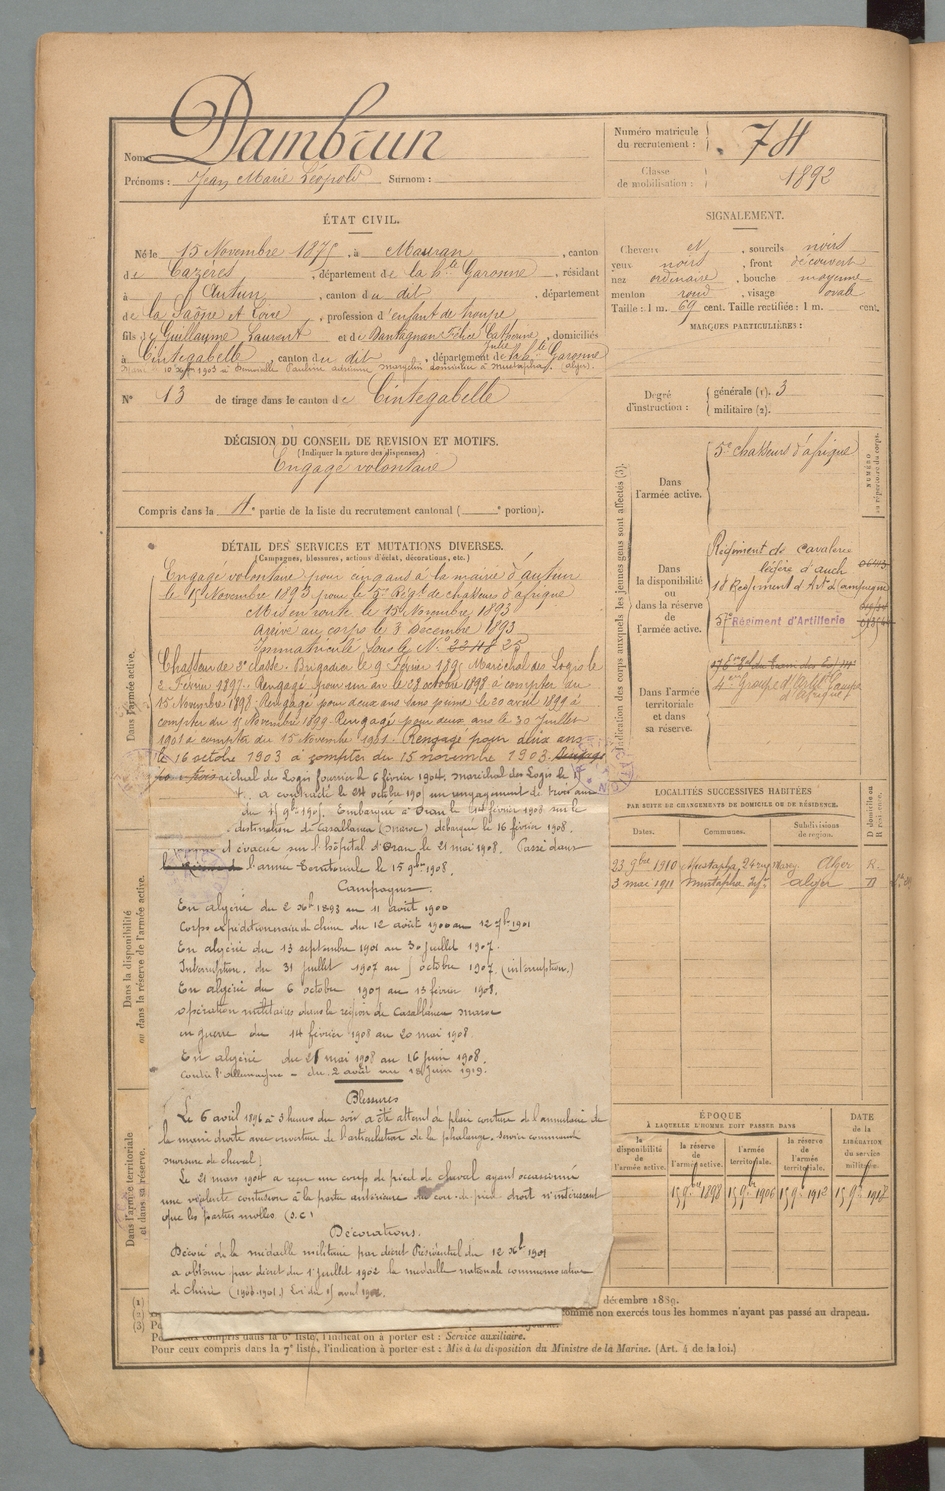 Nom : Dambrun
Prénoms : Jean Marie Léopold Surnom :
Numéro matricule du recrutement : 74
Classe de mobilisation : 1892
ÉTAT CIVIL.
Né le 15 Novembre 1875, à Mauran, canton
de Cazères, département de la hte Garonne, résidant
à Autun, canton du dit, département
de la Saône et Loire, profession d'enfant de troupe
fils de Guillaume Laurent et de Dantagnan Félicie Catherine Julie, domiciliés
à Cintegabelle, canton du dit, département de la hte Garonne
10 1903 à Demoiselle Pauline adrienne domiciliée à Mustapha (Alger).
N° 13 de tirage dans le canton de Cintegabelle
SIGNALEMENT.
Cheveux N, sourcils noirs
yeux noirs, front découvert
nez ordinaire, bouche moyenne
menton rond, visage ovale
Taille : 1 m. 69 cent. Taille rectifiée : 1 m. cent.
MARQUES PARTICULIÈRES :
DÉCISION DU CONSEIL DE REVISION ET MOTIFS.
(Indiquer la nature des dispenses)
Engagé volontaire
Compris dans la 4e partie de la liste du recrutement cantonal ( e portion).
Degré d'instruction : générale (1). 3
militaire (2).
DÉTAIL DES SERVICES ET MUTATIONS DIVERSES.
(Campagnes, blessures, actions d'éclat, décorations, etc.)
Dans l'armée active.
Engagé volontaire pour cinq ans à la mairie d'autun
le 15 Novembre 1893 pour le 5e Régt de chasseurs d'afrique
Mis en route le 15 Novembre 1893
Arrivé au corps le 3 Décembre 1893
Immatriculé sous le N° 2248 25
Chasseur de 2e classe. Brigadier le 9 Février 1895 Maréchal des Logis le
2 Février 1897. Rengagé pour un an le 28 octobre 1898 à compter du
15 Novembre 1898. Rengagé pour deux ans le 20 avril 1899 à
compter du 15 Novembre 1899. Rengagé pour deux ans le 30 Juillet
1901 à compter du 15 Novembre 1901. Rengagé pour deux ans
le 16 octobre 1903 à compter du 15 novembre 1903. Rengagé
maréchal des Logis fourrier le 6 février 1904. maréchal des Logis le 17
a contracté le 24 octobre 190 un rengagement de trois ans
du 15 9bre 1905. Embarqué à Oran le 14 février 1908 sur le
destination de Casablanca (Maroc) débarqué le 16 février 1908.
et évacué sur l'hôpital d'Oran le 21 mai 1908. Passé dans
l'armée Territoriale le 15 9bre 1908.
Campagnes
En algérie du 2 Xbre 1893 au 11 août 1900
Corps expéditionnaire de chine du 12 août 1900 au 12 7bre 1901
En algérie du 13 septembre 1901 au 30 juillet 1907.
Interruption. du 31 juillet 1907 au 5 octobre 1907 (interruption.)
En algérie du 6 octobre 1907 au 13 février 1908.
opération militaires dans la région de Casablanca Maroc
en guerre du 14 février 1908 au 20 mai 1908.
En algérie du 21 mai 1908 au 16 juin 1908.
Contre l'Allemagne - du 2 août au 18 Juin 1919.
Blessures
Le 6 avril 1896 à 3 heures du soir a été atteint de plaie contuse de l'annulaire de
la main droite avec ouverture de l'articulation de la phalange, service commandé
morsure de cheval)
Le 21 mars 1904 a reçu un coup de pied de cheval ayant occasionné
une violente contusion à la partie antérieure du cou-de-pied droit n'intéressant
que les parties molles (S.C)
Décorations.
Décoré de la médaille militaire par décret Présidentiel du 12 Xbre 1901
a obtenu par décret du 1er juillet 1902 la médaille nationale commémorative
de Chine (1900-1901.) Loi du 15 avril 1902.
Dans la disponibilité ou dans la réserve de l'armée active.
Dans l'armée territoriale et dans sa réserve.
Indication des corps auxquels les jeunes gens sont affectés (3).
NUMÉRO au répertoire du corps.
Dans l'armée active.
5e chasseurs d'afrique
Dans la disponibilité ou dans la réserve de l'armée active.
Régiment de cavalerie
légère d'auch
18 Régiment d'Art. Campagne
5e Régiment d'Artillerie
Dans l'armée territoriale et dans sa réserve.
4e Groupe d'Artie Campe
d'Afrique
LOCALITÉS SUCCESSIVES HABITÉES
PAR SUITE DE CHANGEMENTS DE DOMICILE OU DE RÉSIDENCE.
Dates. Communes. Subdivisions de région. D domicile ou R résidence.
23 9bre 1910 Mustapha, 24 rue Alger R.
3 mai 1911 Mustapha Alger D
ÉPOQUE
À LAQUELLE L'HOMME DOIT PASSER DANS
DATE de la LIBÉRATION du service militaire.
la disponibilité de l'armée active.
la réserve de l'armée active.
l'armée territoriale.
la réserve de l'armée territoriale.
15 9bre 1898 15 9bre 1906 15 9bre 1912 15 9bre 1918
(1)
(2)
(3)
décembre 1889.
comme non exercés tous les hommes n'ayant pas passé au drapeau.
Pour ceux compris dans la 6e liste, l'indication à porter est : Service auxiliaire.
Pour ceux compris dans la 7e liste, l'indication à porter est : Mis à la disposition du Ministre de la Marine. (Art. 4 de la loi.)